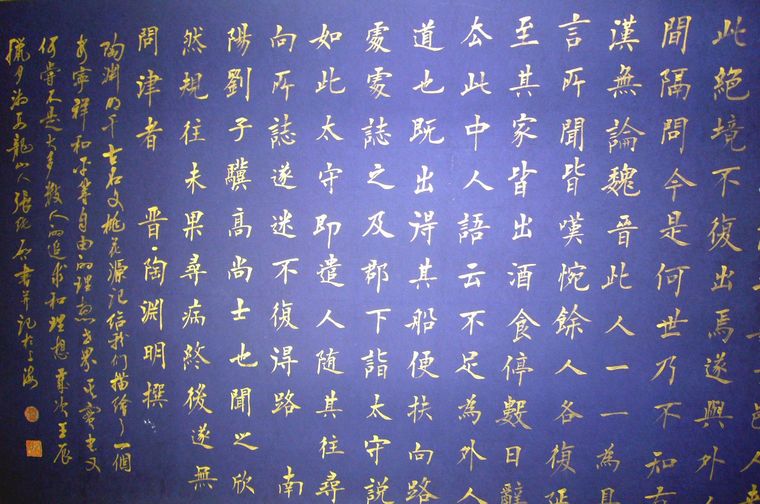 邑人來
此絕境不復出焉遂與外
間隔問今是何世乃不知有
漢無論魏晉此人一一為具
言所聞皆嘆惋餘人各復延
至其家皆出酒食停數日辭
去此中人語云不足為外人
道也既出得其船便扶向路
處處誌之及郡下詣太守說
如此太守即遣人隨其往尋
向所誌遂迷不復得路 南
陽劉子驥高尚士也聞之欣
然規往未果尋病終後遂無
問津者 晉·陶淵明撰
陶淵明千古名文桃花源記給我们描繪了一個
安寧祥和平等自由的理想世界其實又
何嘗不是大多數人的追求和理想 歲次壬辰
臘月龍山人張書并記於上海